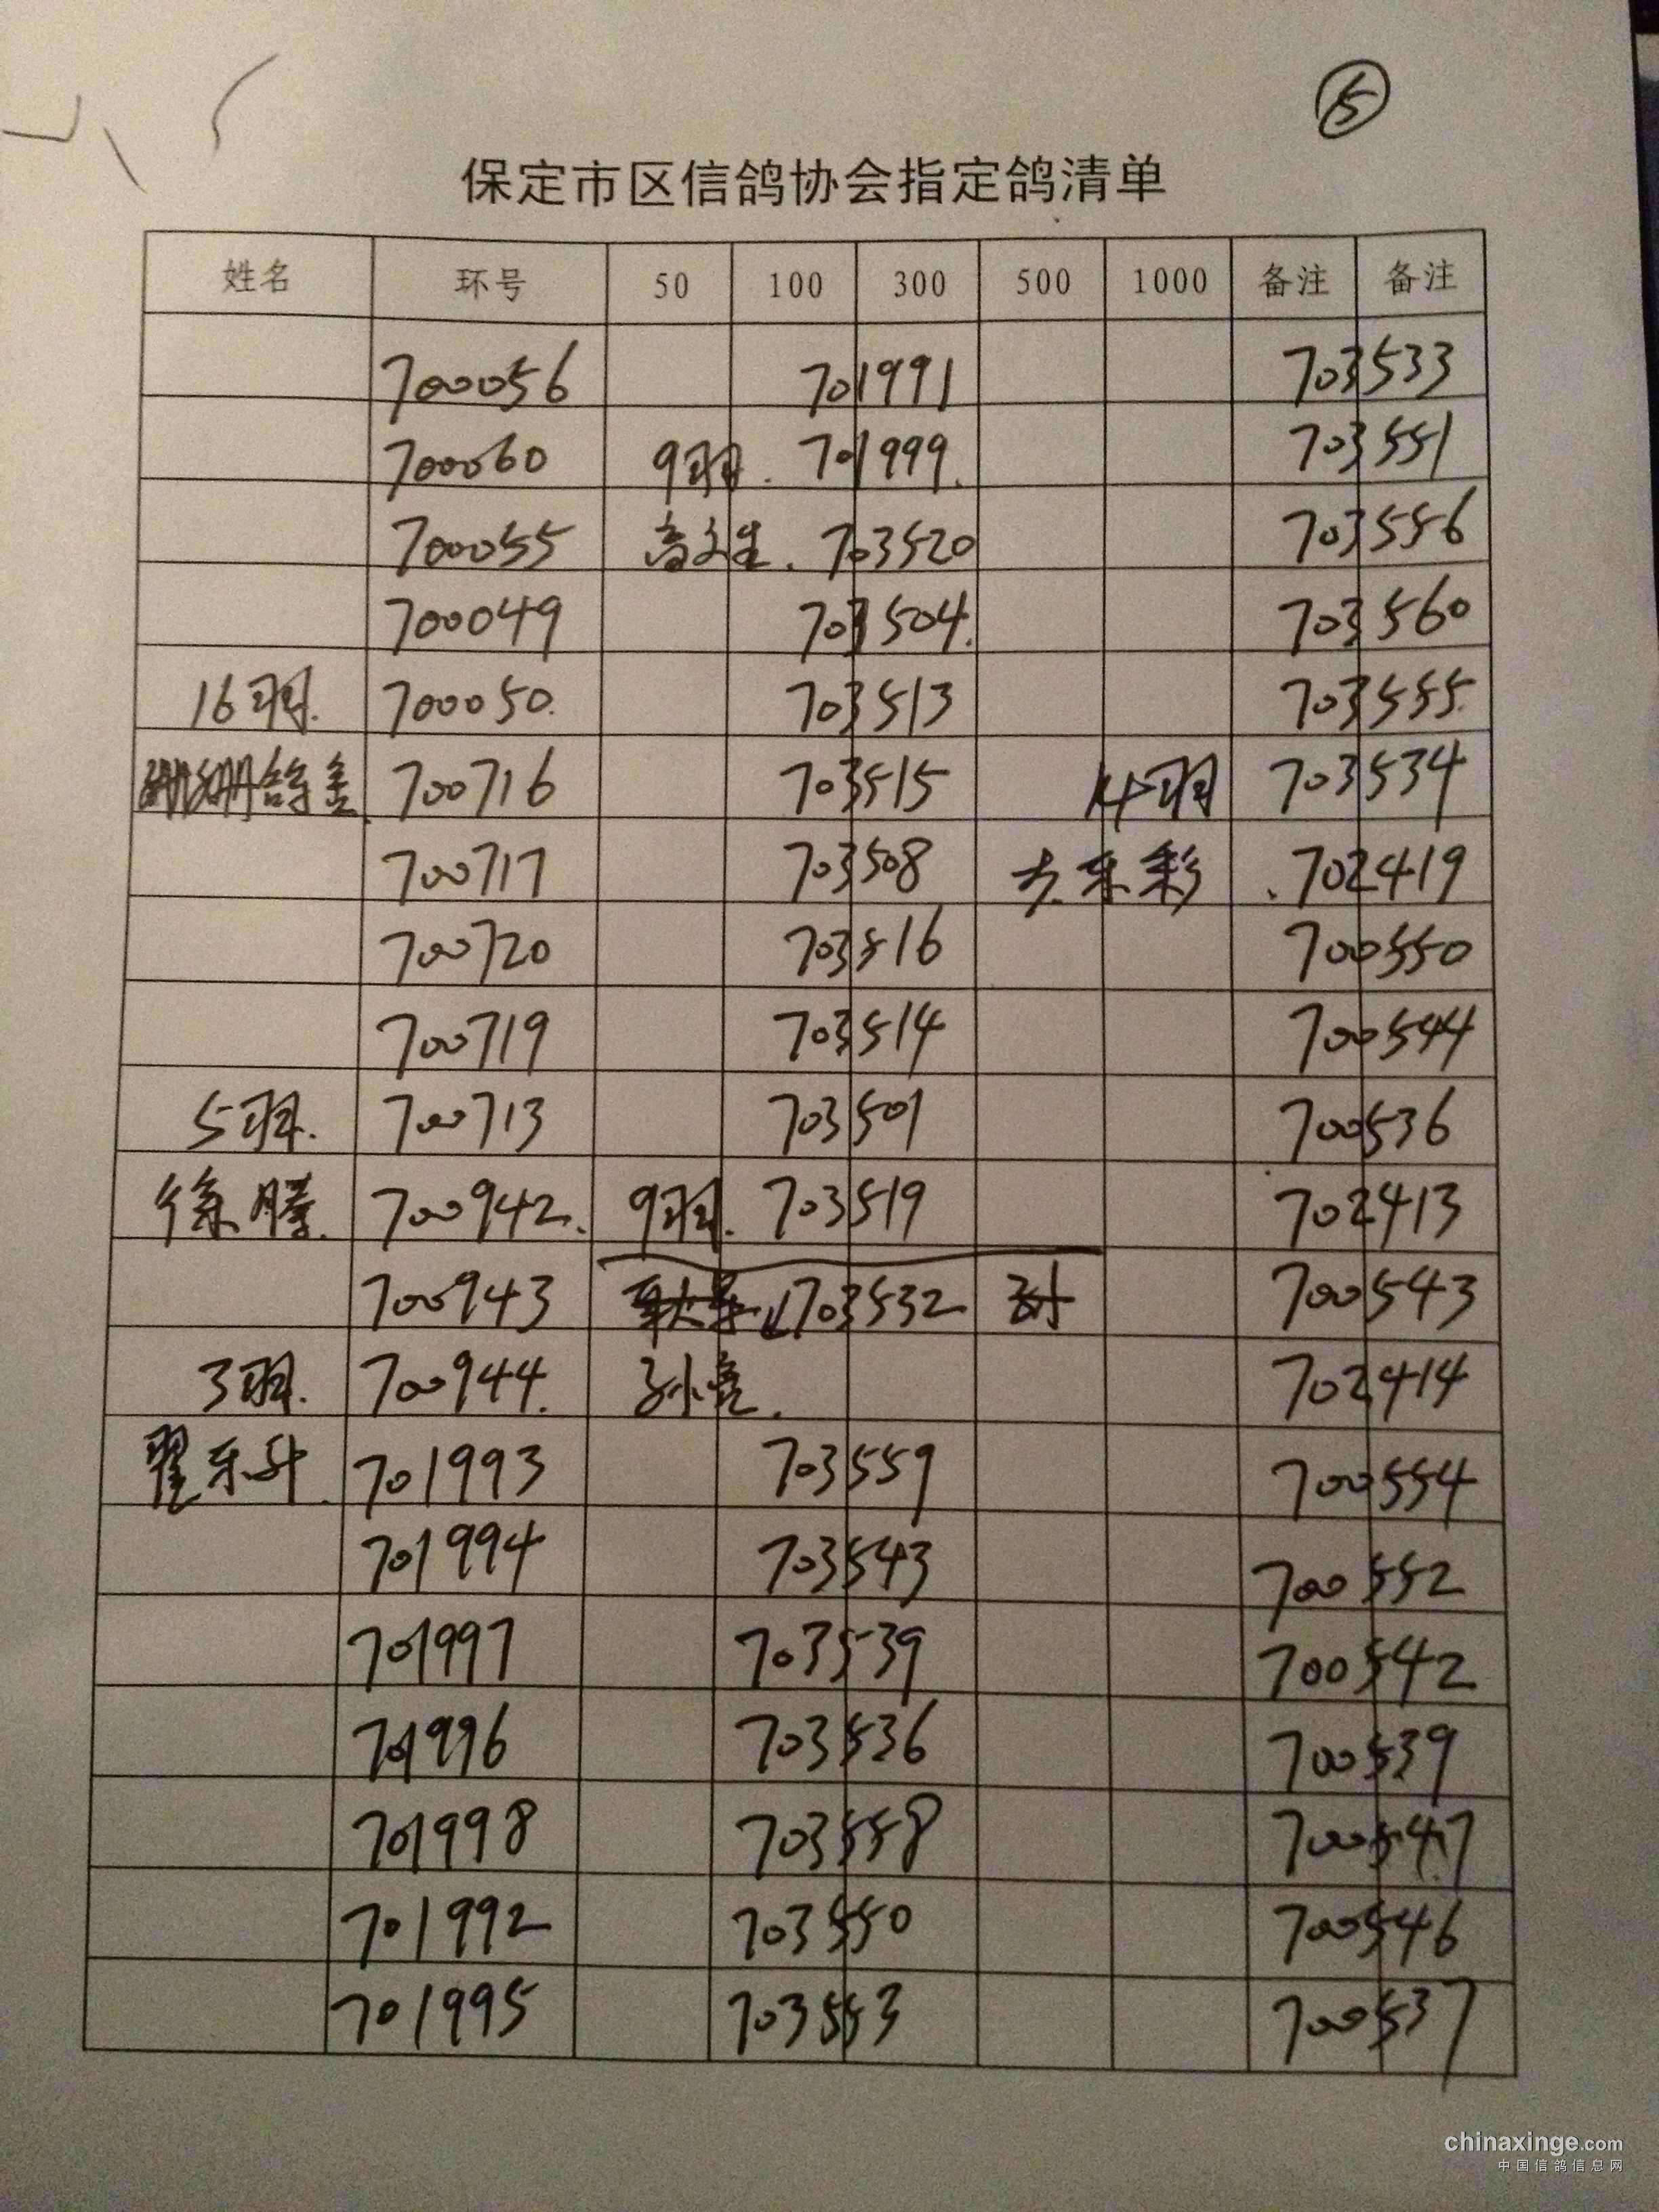 5
保定市区信鸽协会指定鸽清单
姓名 环号 50 100 300 500 1000 备注 备注
700056 701991 703533
700060 9羽. 701999. 703551
700055 高文生. 703520 703556
700049 703504. 703560
16羽. 700050. 703513 703555.
珊珊鸽舍. 700716 703515 14羽 703534
700717 703508 东彩 702419
700720 703516 700550
700719 703514 700544
5羽. 700713 703501 700536
徐腾. 700942. 9羽. 703519 702413
700943 703532 700543
3羽. 700944. 孙亮. 702414
翟东升. 701993 703559 700554
701994 703543 700552
701997 703539 700542
701996 703536 700539
701998 703558 700547
701992 703550 700546
701995 703553 700537
chinaxinge.com
中国信鸽信息网